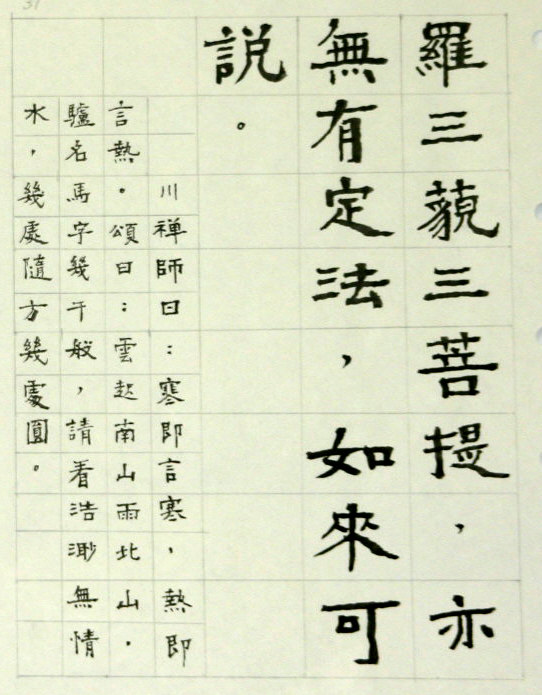 羅三藐三菩提，亦
無有定法，如來可
説。
川禅師曰：寒即言寒，熱即
言熱。頌曰：雲起南山雨北山．
驢名馬字幾千般，請看浩渺無情
水，幾處隨方幾處圓。